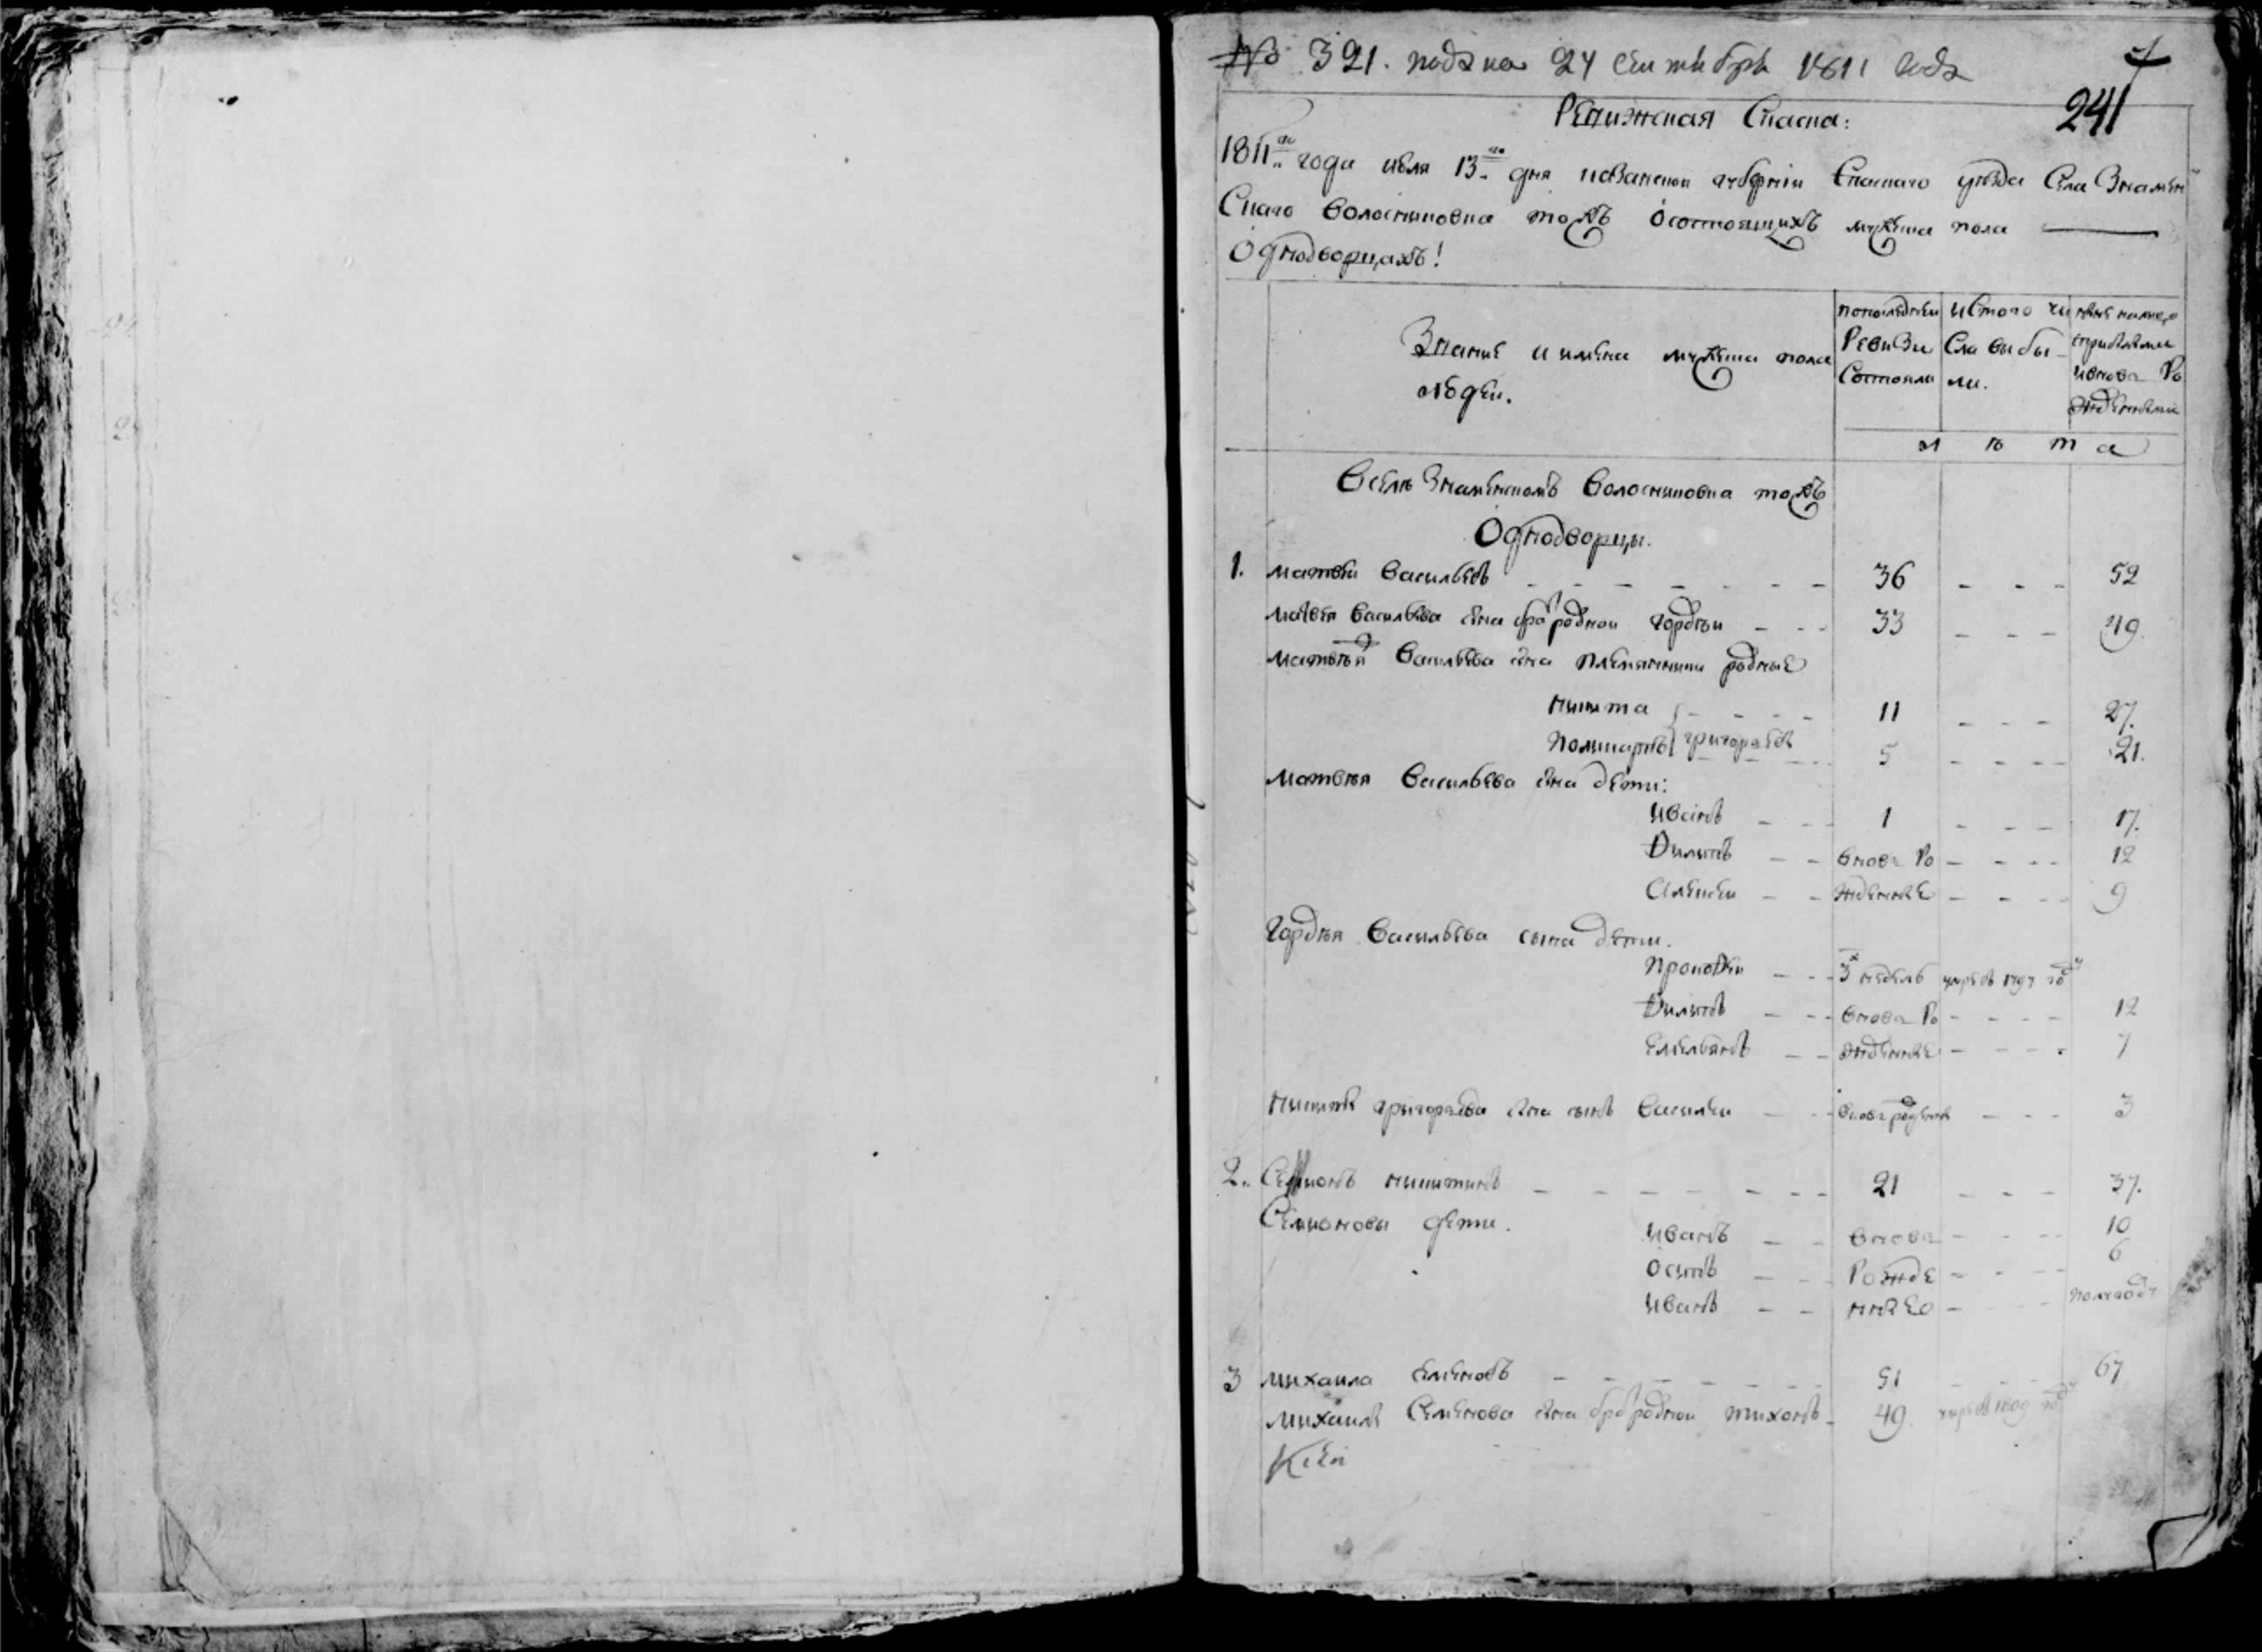 № 321. подана 24 сентября 1811 года
241
Ревижская Скаска:
1811го года июля 13го дня казанской губернии Спаскаго уезда Села Знамен
Скаго Волостниковка тожъ осостоящихъ мужеска пола
Однодворцахъ!
Звание и имена мужеска пола людей.
попоследней Ревизи Состояли
истого числа выбыли.
ныне налицо сприбылыми ивновь Рожденными
лета
Вселе Знаменскомъ Волостниковка тожъ
Однодворцы.
1. матвей Васильевъ 36 52
матвея Васильева сына братъ родной Гордей 33 49.
матвея Васильева сына племянники родные
никита 11 27.
поликарпъ григорьевы 5 21.
матвея Васильева сына дети:
Иванъ 1 17.
Филипъ вновь Ро 12
Алексей жденные 9
Гордея Васильева сына дети.
Прокофей 3х недель умре въ 1797 году
Филипъ вновь Ро 12
Емельянъ жденные 7
никиты григорьева сына сынъ Василей вновь рожденъ 3
2. Семионъ никитинъ 21 37.
Семионовы дети. Иванъ вновь 10
Осипъ Рожде 6
Иванъ нные полгода
3 михаила Семеновъ 51 67
михаилы Семенова сына братъ родной тихонъ 49. умре въ 1809 году
Ксей